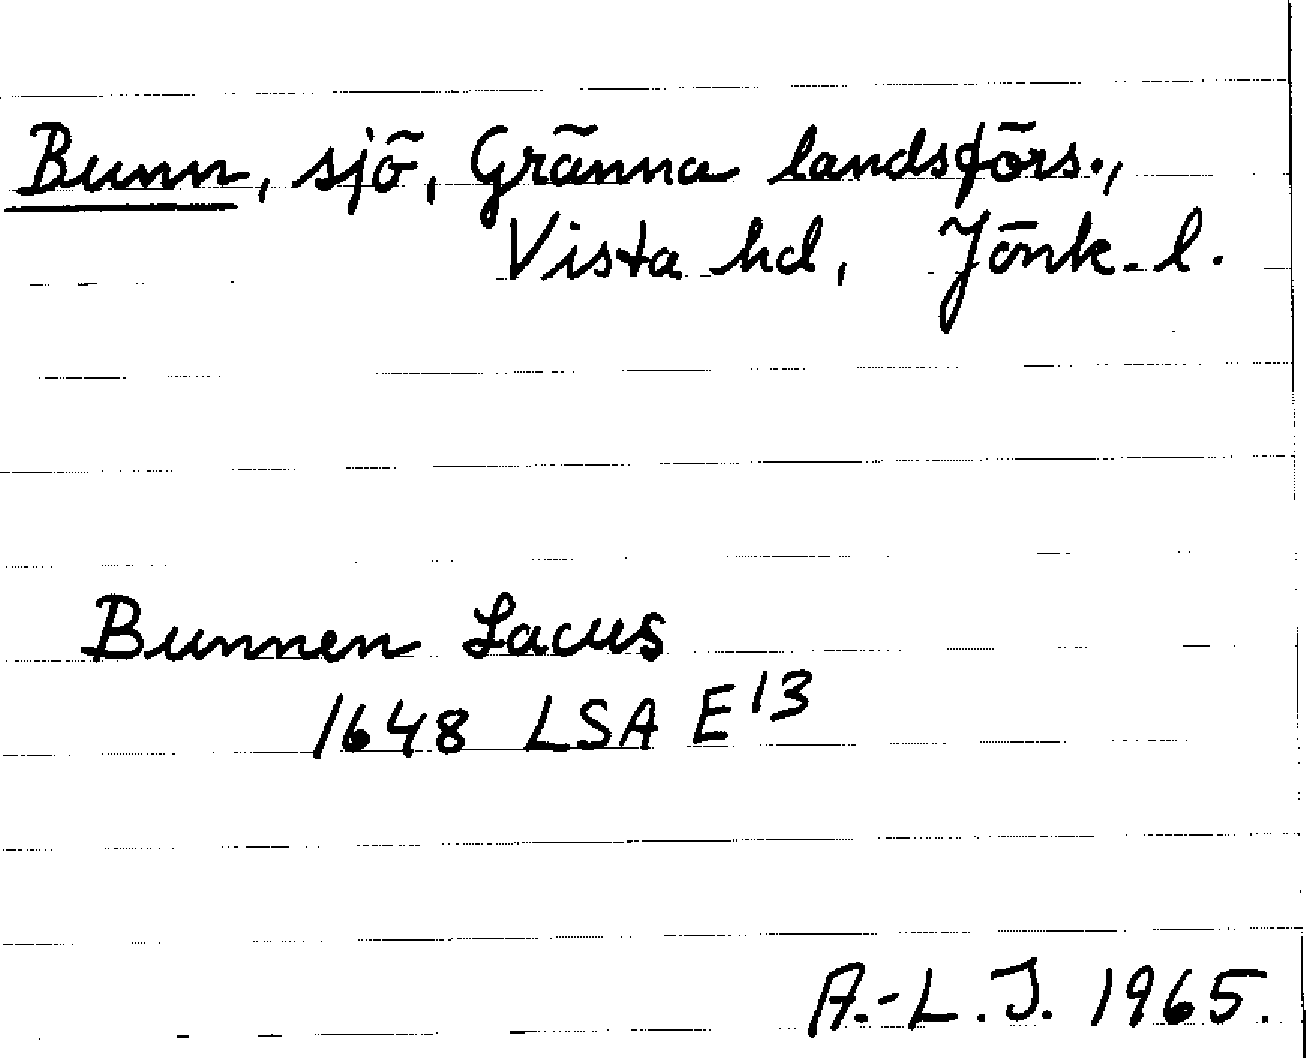 Bunn, sjö, Gränna landsförs.,
Vista hd, Jönk. l.
Bunnen Lacus
1648 LSA E 13
A.-L. J. 1965.